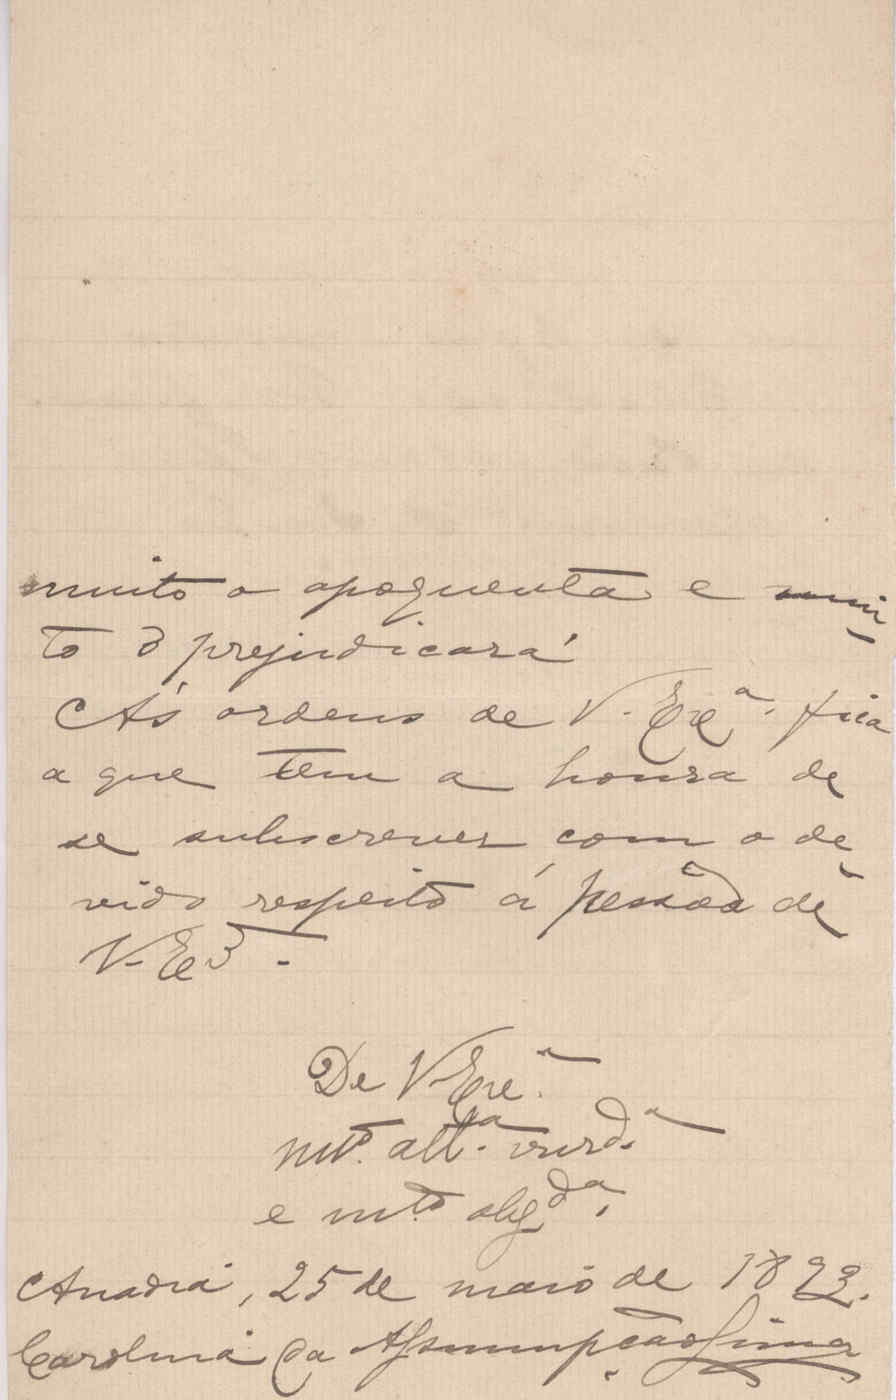 muito o apoquenta e mui-
to o prejudicará
Ás ordens de V. Exc.ª fica
a que tem a honra de
se subscrever com o de-
vido respeito á pessôa de
V. Ex.ª
De V. Exc.ª
mt.º att.ª vnrd.ª
e mt.º obg.da
Anadia, 25 de maio de 1893.
Carolina da Assumpção Lima